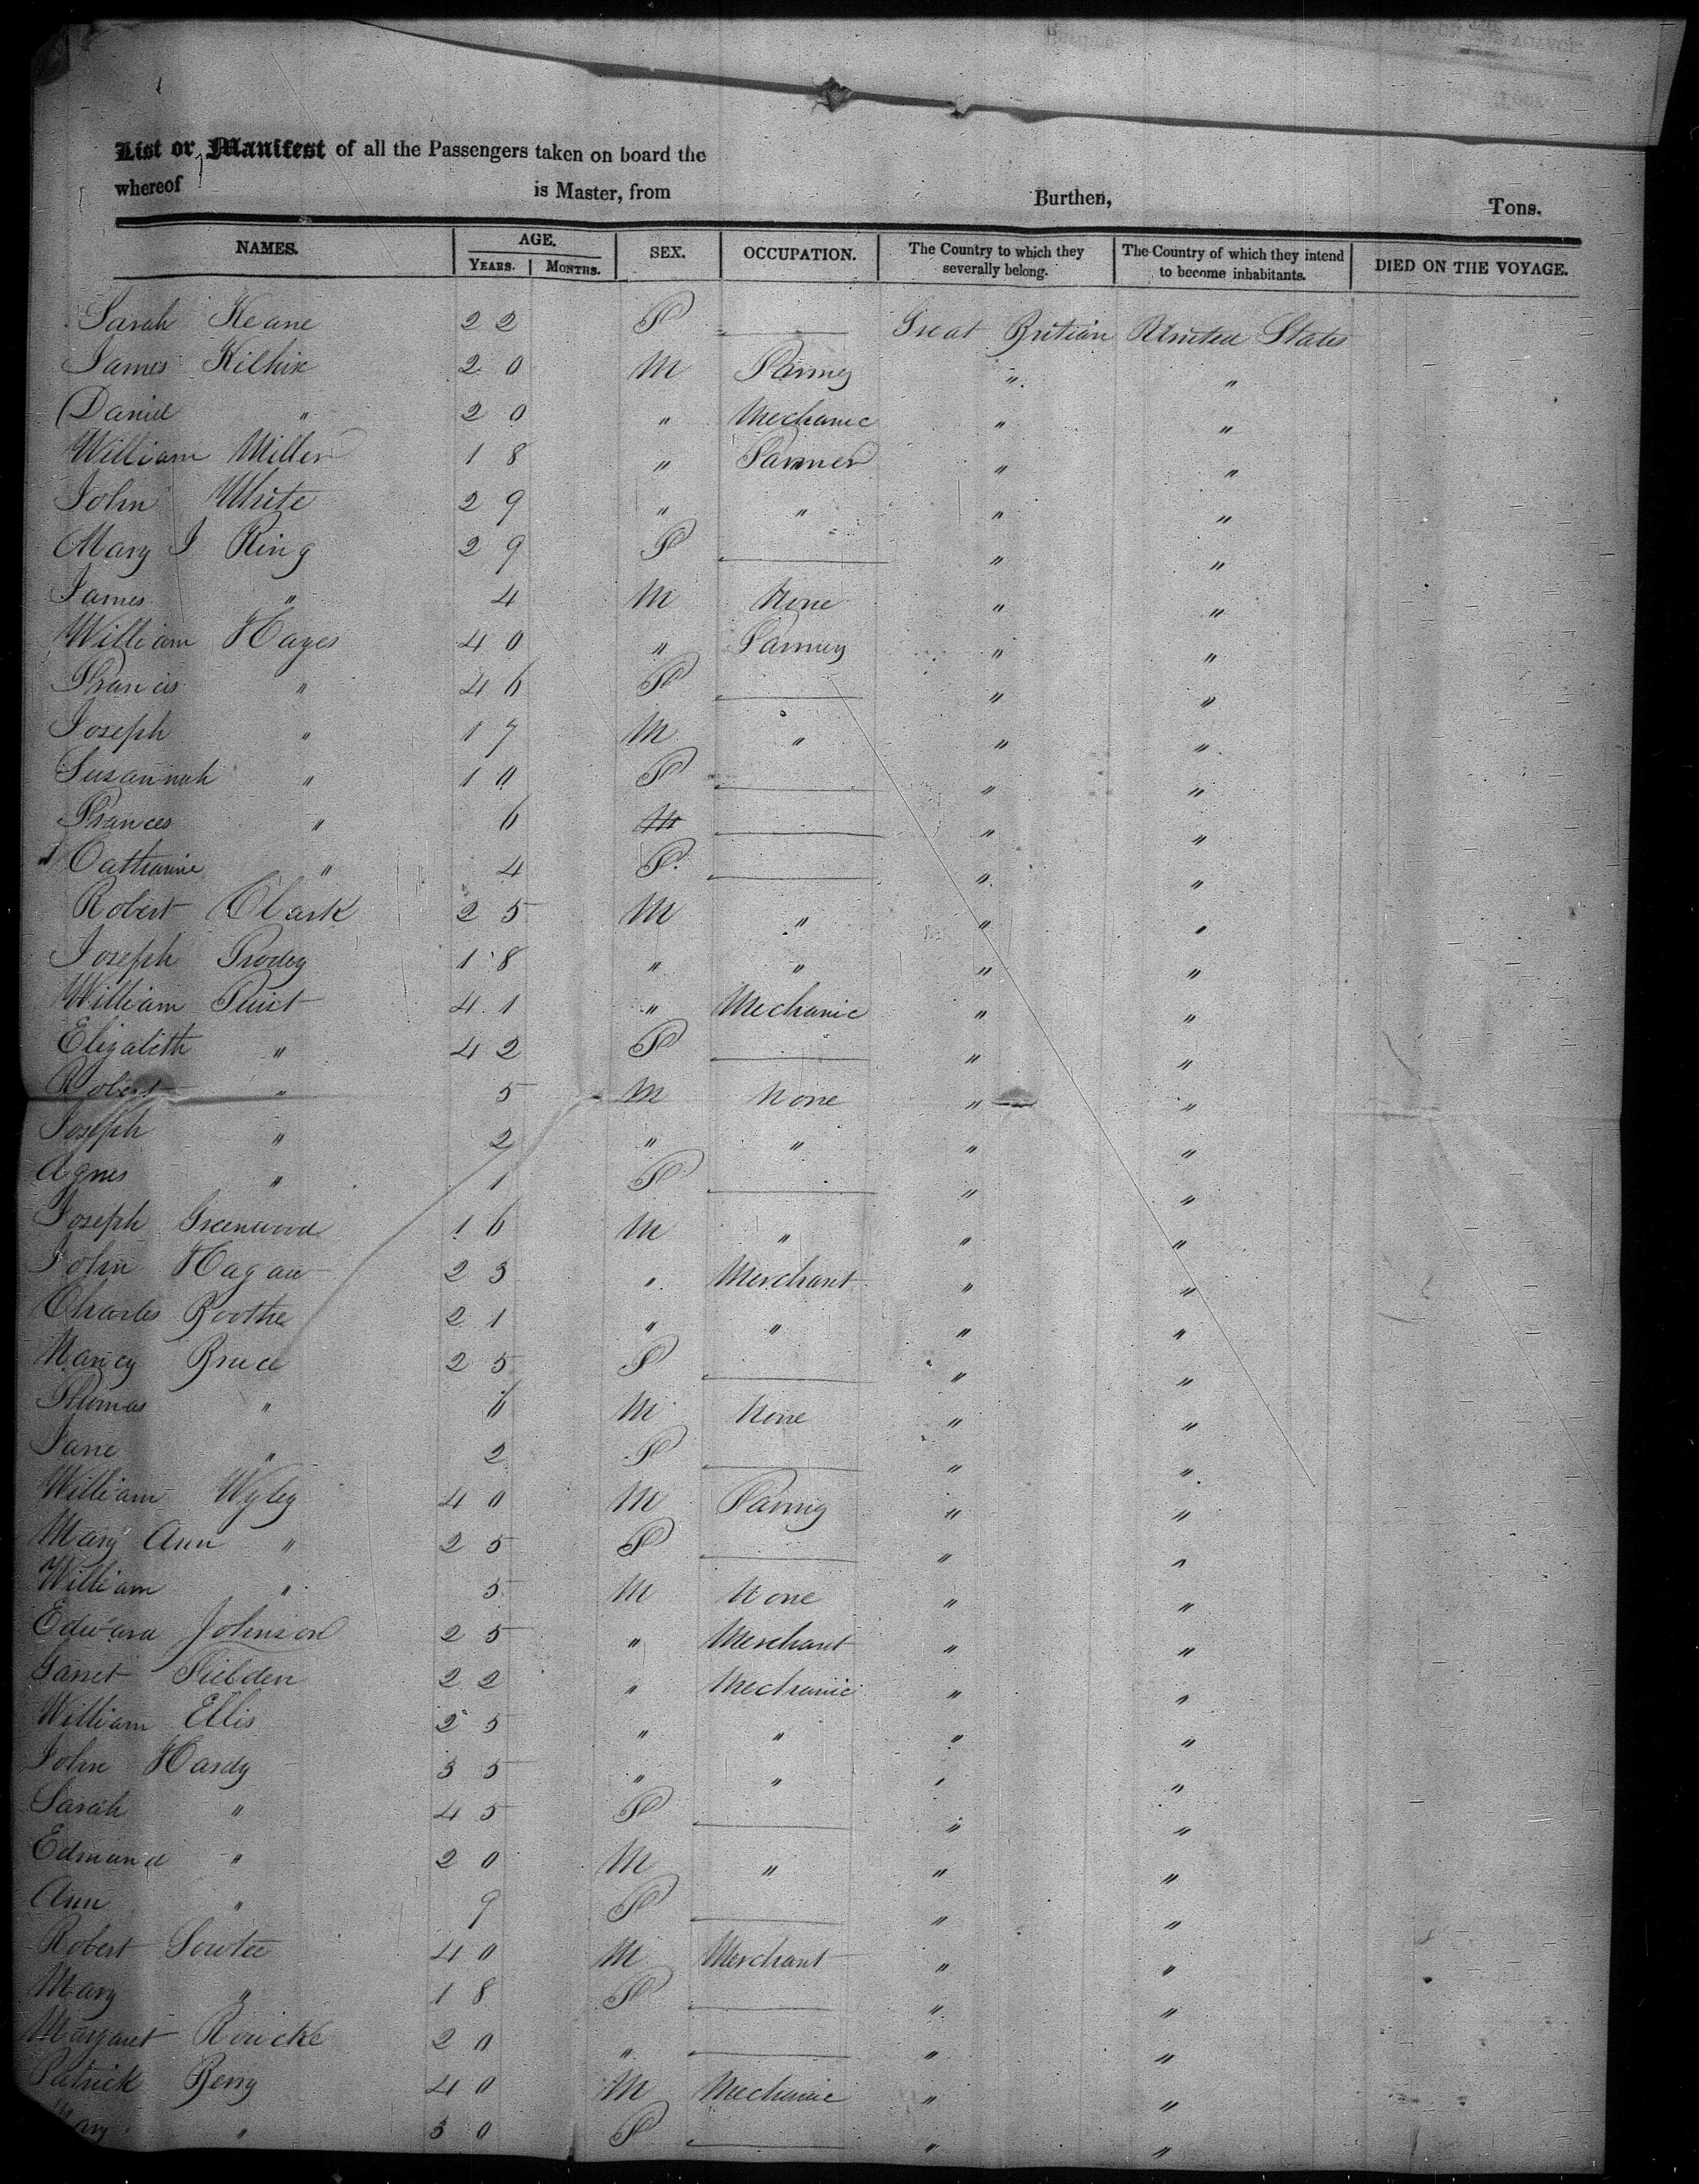 List or Manifest of all the Passengers taken on board the
whereof is Master, from Burthen, Tons.
NAMES. AGE. YEARS. MONTHS. SEX. OCCUPATION. The Country to which they severally belong. The Country of which they intend to become inhabitants. DIED ON THE VOYAGE.
Sarah Keane 22 F Great Britian United States
James 20 M Farmer " "
Daniel " 20 " Mechanic " "
William Miller 18 " Farmer " "
John White 29 " " " "
Mary J Ring 29 F " "
James " 4 M None " "
William Hayes 40 " Farmer " "
Francis " 46 F " "
Joseph " 17 M " " "
Susannah " 10 F " "
Frances " 6 " "
Catharine " 4 F " "
Robert Clark 25 M " " "
Joseph 18 " " " "
William 41 " Mechanic " "
Elizabeth " 42 F " "
Robert " 5 M None " "
Joseph " 2 " " " "
Agnes " 1 F " "
Joseph Greenwood 16 M " " "
John Hagan 23 " Merchant " "
Charles Boothe 21 " " " "
Nancy Bruce 25 F " "
Thomas " 6 M None " "
Jane " 2 F " "
William Wyley 40 M Farmer " "
Mary Ann " 25 F " "
William " 5 M None " "
Edward Johnson 25 " Merchant " "
22 " Mechanic " "
William Ellis 25 " " " "
John Hardy 35 " " " "
Sarah " 45 F " "
Edmund " 20 M " " "
Ann " 9 F " "
Robert 40 M Merchant " "
Mary " 18 F " "
Margaret 20 " " "
Patrick Berry 40 M Mechanic " "
Mary " 30 F " "